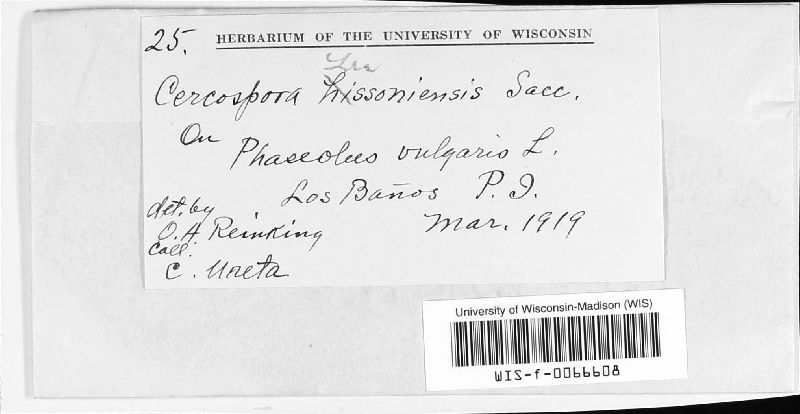 25. HERBARIUM OF THE UNIVERSITY OF WISCONSIN
Lu
Cercospora hissoniensis Sacc.
On
Phaseolus vulgaris L.
Los Baños P. I.
det. by
O. A. Reinking Mar. 1919
Coll.
C. Ureta
University of Wisconsin-Madison (WIS)
WIS-f-0066608